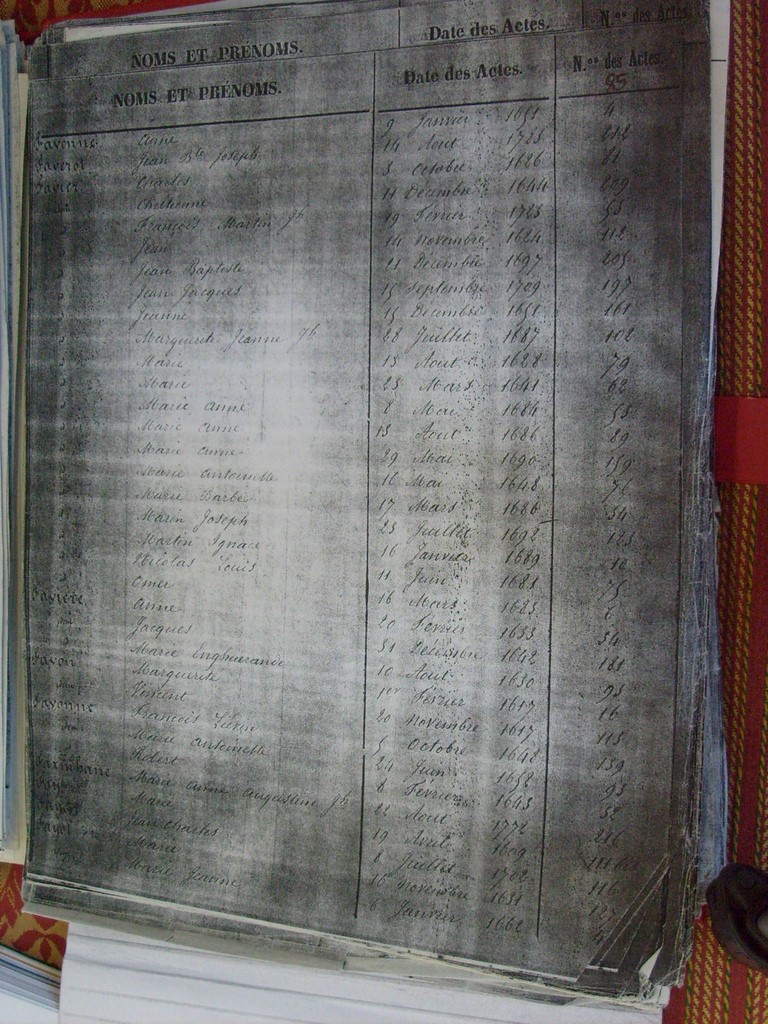 NOMS ET PRÉNOMS. Date des Actes. N.os des Actes.
NOMS ET PRÉNOMS. Date des Actes. N.os des Actes.
95
Favenne Anne 9 Janvier 1651 4
Faverot Jean Bte Joseph 14 Aout 1723 212
Favier Charles 3 Octobre 1626
Chettienne 11 Decembre 1644 209
François Martin gh 19 Fevrier 1723 53
Jean 14 Novembre 1624 112
Jean Baptiste 21 Decembre 1697 205
Jean Jacques 15 Septembre 1709 197
Jeanne 15 Decembre 1651 161
Marguerite Jeanne gh 28 Juillet 1687 102
Marie 13 Aout 1628 79
Marie 23 Mars 1641 62
Marie Anne 8 Mai 1684 53
Marie Anne 13 Aout 1686 89
Marie Anne 29 Mai 1690 159
Marie Antoinette 16 Mai 1648 76
Marie Barbe 17 Mars 1686 34
Marin Joseph 23 Juillet 1692 123
Martin Ignace 16 Janvier 1689
Nicolas Louis 11 Juin 1683 75
Omer 16 Mars 1623 6
Anne 20 Fevrier 1633 34
Jacques 31 Decembre 1642
Marie Enguerande 10 Aout 1630 93
Favon Marguerite 1er Fevrier 1617 16
Vincent 20 Novembre 1617 113
Favonne François Liévin 5 Octobre 1648 139
Marie Antoinette 24 Juin 1658 93
Robert 6 Fevrier 1643 32
Marie Anne Augustine gh 22 Aout 1772 216
Marie 19 Avril 1609
Fayol Jean Charles 8 Juillet 1702 116
Marie 16 Novembre 1631 127
Marie Jeanne 6 Janvier 1662 4